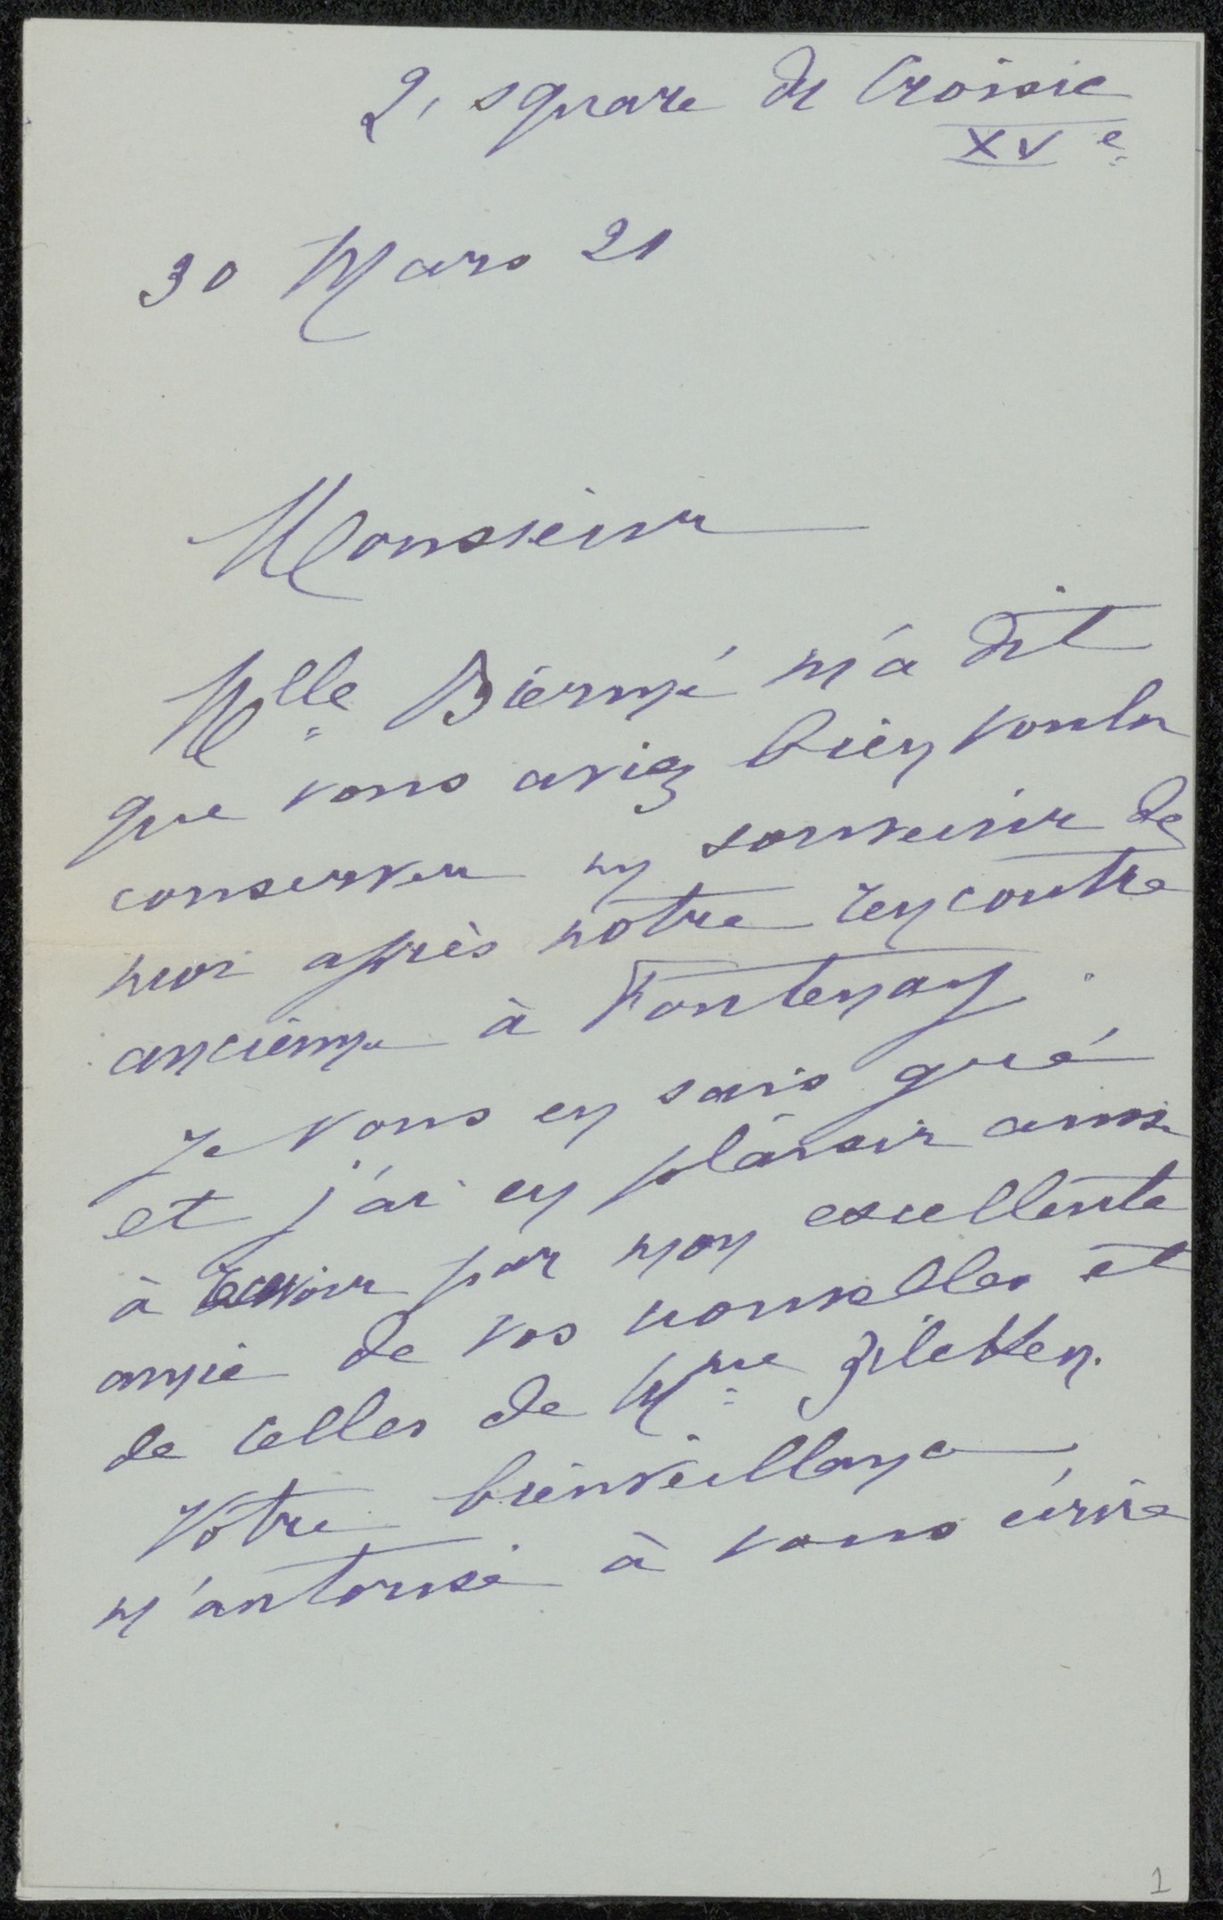 2, square du Croisic
XVe
30 Mars 21
Monsieur
Mlle Biermé m'a dit
que vous aviez bien voulu
conserver un souvenir de
moi après notre rencontre
ancienne à Fontenay.
Je vous en sais gré
et j'ai eu plaisir aussi
à recevoir par mon excellente
amie de vos nouvelles et
de celles de Mme Zilcken.
Votre bienveillance
m'autorise à vous écrire
1